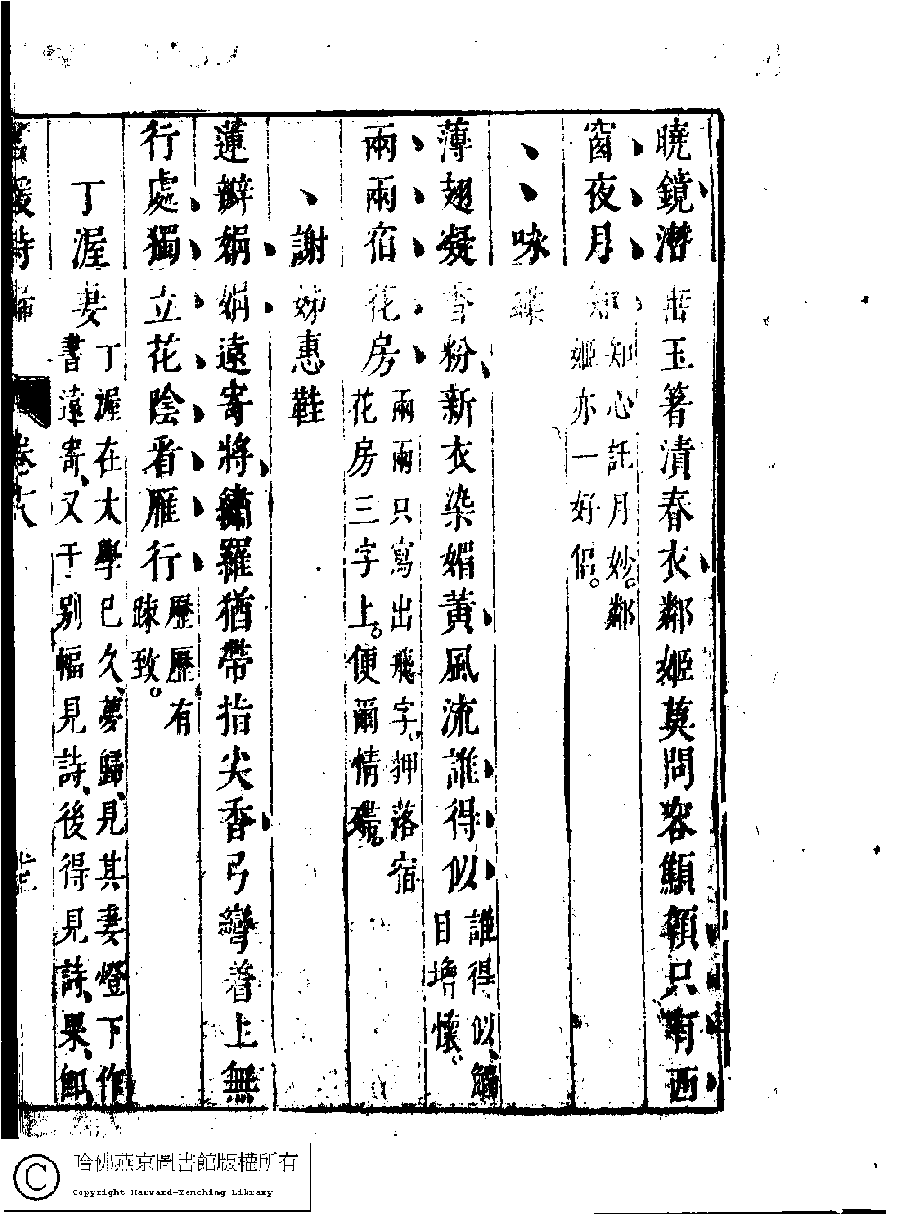 曉鏡潸垂玉箸漬春衣鄰姬莫問容顦顇只有西
窗夜月知知心託月妙鄰
姬亦一好侶
咏蝶
薄翅凝香粉新衣染媚黃風流誰得似誰得似觸
目增懷
兩兩宿花房兩兩只寫出飛字押落宿
花房三字上便爾情
謝姊惠鞋
蓮瓣娟娟遠寄將繡羅猶帶指尖香弓彎着上無
行處獨立花陰看雁行歷歷有
疎致
丁渥妻丁渥在太學已久夢歸見其妻燈下作
書遠寄又于別幅見詩後得見詩果卽
名媛詩歸 卷十八
哈佛燕京圖書館版權所有
Copyright Harvard-Yenching Library